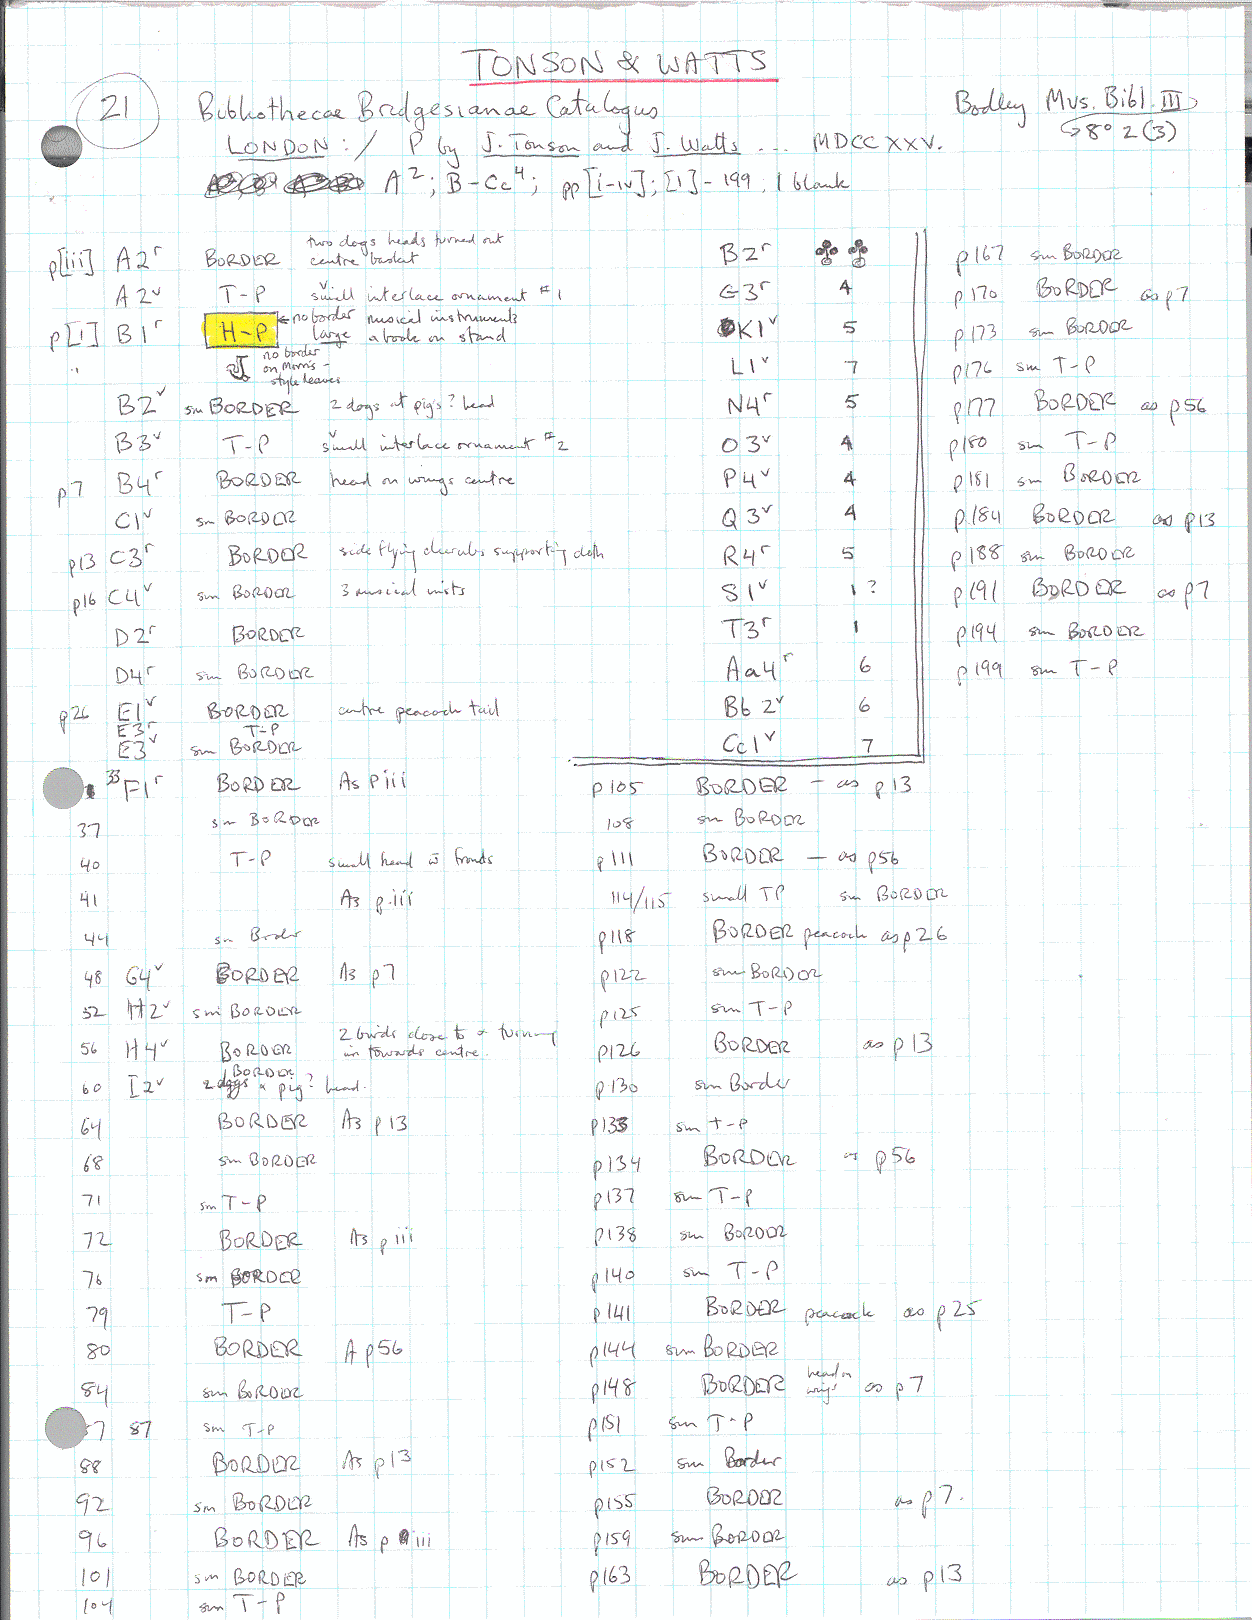 TONSON & WATTS
21
Bibliothecae Bridgesianae Catalogus
Bodley Mus. Bibl. III
→ 8° 2 (3)
LONDON : / P by J. Tonson and J. Watts ... MDCCXXV.
A²; B-Cc⁴; pp [i-iv]; [1]-199, 1 blank
p[iii] A2ʳ BORDER two dogs heads turned out centre basket
A2ᵛ T-P small interlace ornament #1
p[1] B1ʳ H-P ← no border musical instruments
large a book on stand
" no border on Morris-style leaves
B2ᵛ sm BORDER 2 dogs at pigs? head
B3ᵛ T-P small interlace ornament #2
p7 B4ʳ BORDER head on wings centre
C1ᵛ sm BORDER
p13 C3ʳ BORDER side flying cherubs supporting cloth
p16 C4ᵛ sm BORDER 3 musical insts
D2ʳ BORDER
D4ʳ sm BORDER
p26 E1ᵛ BORDER centre peacock tail
E3ʳ T-P
E3ᵛ sm BORDER
33 F1ʳ BORDER As p iii
37 sm BORDER
40 T-P small head w fronds
41 As p.iii
44 sm Border
48 G4ᵛ BORDER As p7
52 H2ᵛ sm BORDER
56 H4ᵛ BORDER 2 birds close to & turning in towards centre.
60 I2ᵛ BORDER 2 dogs a pig? head.
64 BORDER As p13
68 sm BORDER
71 sm T-P
72 BORDER As p iii
76 sm BORDER
79 T-P
80 BORDER A p56
84 sm BORDER
87 87 sm T-P
88 BORDER As p13
92 sm BORDER
96 BORDER As p iii
101 sm BORDER
104 sm T-P
B2ʳ
G3ʳ 4
K1ᵛ 5
L1ᵛ 7
N4ʳ 5
O3ᵛ 4
P4ᵛ 4
Q3ᵛ 4
R4ʳ 5
S1ᵛ 1?
T3ʳ 1
Aa4ʳ 6
Bb2ᵛ 6
Cc1ᵛ 7
p105 BORDER - as p13
108 sm BORDER
p111 BORDER - as p56
114/115 small TP sm BORDER
p118 BORDER peacock as p26
p122 sm BORDER
p125 sm T-P
p126 BORDER as p13
p130 sm Border
p133 sm T-P
p134 BORDER as p56
p137 sm T-P
p138 sm BORDER
p140 sm T-P
p141 BORDER peacock as p25
p144 sm BORDER
p148 BORDER head on wings as p7
p151 sm T-P
p152 sm Border
p155 BORDER as p7.
p159 sm BORDER
p163 BORDER as p13
p167 sm BORDER
p170 BORDER as p7
p173 sm BORDER
p176 sm T-P
p177 BORDER as p56
p180 sm T-P
p181 sm BORDER
p184 BORDER as p13
p188 sm BORDER
p191 BORDER as p7
p194 sm BORDER
p199 sm T-P